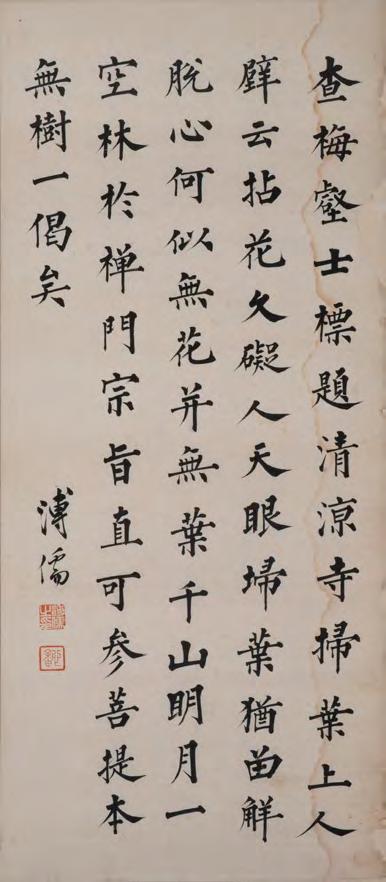 查梅壑士標題清涼寺掃葉上人
壁云拈花久礙人天眼埽葉猶留解
脫心何似無花并無葉千山明月一
空林於禅門宗旨直可參菩提本
無樹一偈矣
溥儒